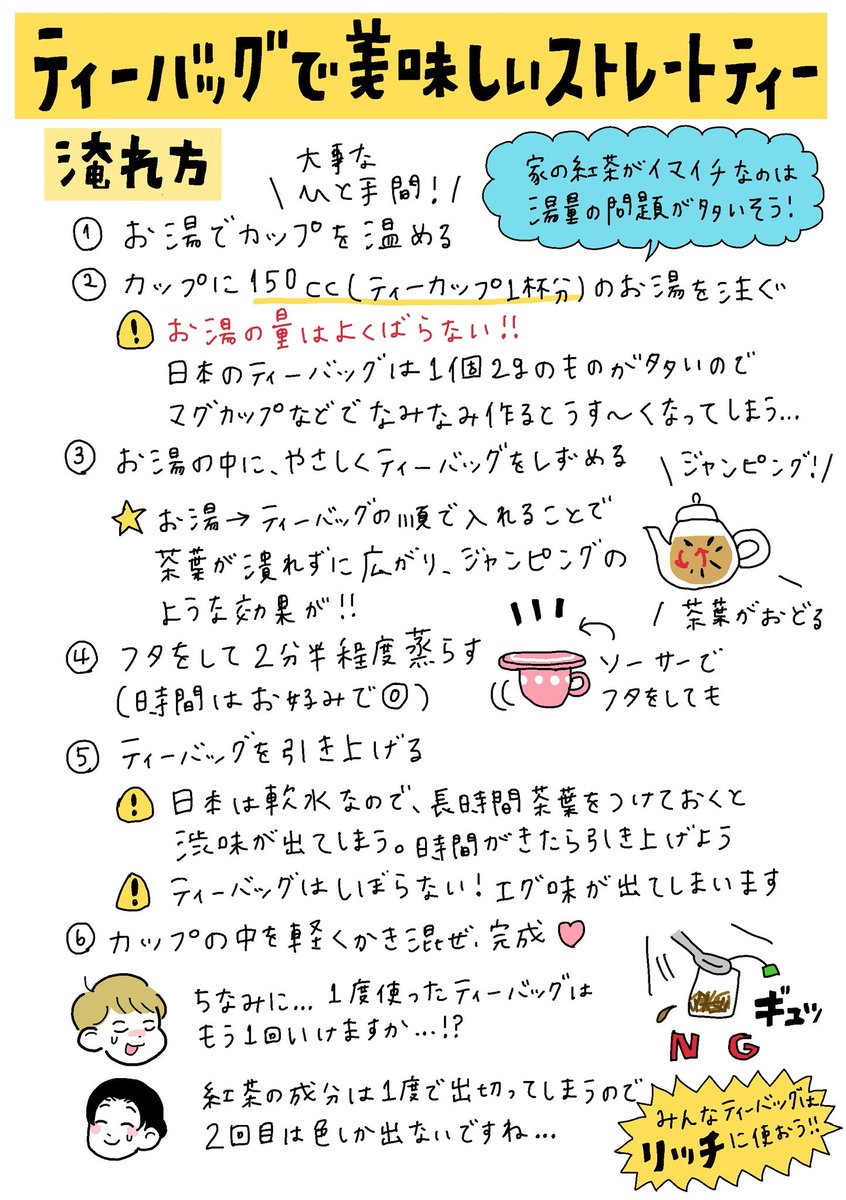 ティーバッグで美味しいストレートティー
淹れ方
大事な
ひと手間!
家の紅茶がイマイチなのは
湯量の問題が多いそう!
① お湯でカップを温める
② カップに150cc(ティーカップ1杯分)のお湯を注ぐ
お湯の量はよくばらない!!
日本のティーバッグは1個2gのものが多いので
マグカップなどでなみなみ作るとうす〜くなってしまう...
③ お湯の中に、やさしくティーバッグをしずめる
お湯→ティーバッグの順で入れることで
茶葉が潰れずに広がり、ジャンピングの
ような効果が!!
ジャンピング!
茶葉がおどる
④ フタをして2分半程度蒸らす
(時間はお好みで◎)
ソーサーで
フタをしても
⑤ ティーバッグを引き上げる
日本は軟水なので、長時間茶葉をつけておくと
渋味が出てしまう。時間がきたら引き上げよう
ティーバッグはしぼらない!エグ味が出てしまいます
⑥ カップの中を軽くかき混ぜ、完成
ちなみに...1度使ったティーバッグは
もう1回いけますか...!?
ギュッ
NG
紅茶の成分は1度で出切ってしまうので
2回目は色しか出ないですね...
みんなティーバッグは
リッチに使おう!!